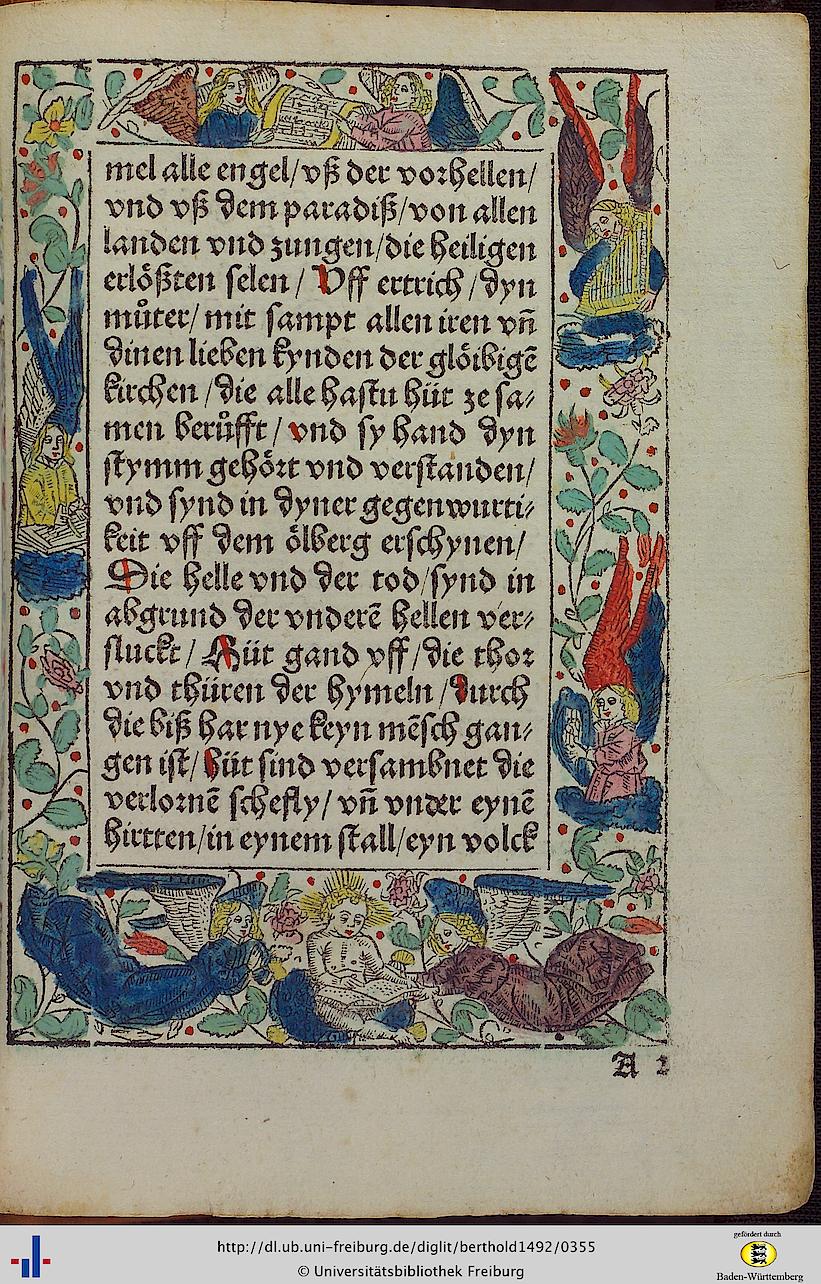 mel alle engel/ vß der vorhellen/
vnd vß dem paradiß/ von allen
landen vnd zungen/ die heiligen
erlößten selen/ Vff ertrich/ dyn
můter/ mit sampt allen iren vñ
dinen lieben kynden der glöibigē
kirchen/ die alle hastu hüt ze sa⸗
men berůfft/ vnd sy hand dyn
stymm gehört vnd verstanden/
vnd synd in dyner gegenwurti⸗
keit vff dem ölberg erschynen/
Die helle vnd der tod/ synd in
abgrund der vnderē hellen ver⸗
sluckt/ Hüt gand vff/ die thor
vnd thüren der hymeln/ durch
die biß har nye keyn mēsch gan⸗
gen ist/ hüt sind versambnet die
verlornē schefly/ vñ vnder eynē
hirtten/ in eynem stall/ eyn volck
A 2
http://dl.ub.uni-freiburg.de/diglit/berthold1492/0355
© Universitätsbibliothek Freiburg
gefördert durch
Baden-Württemberg